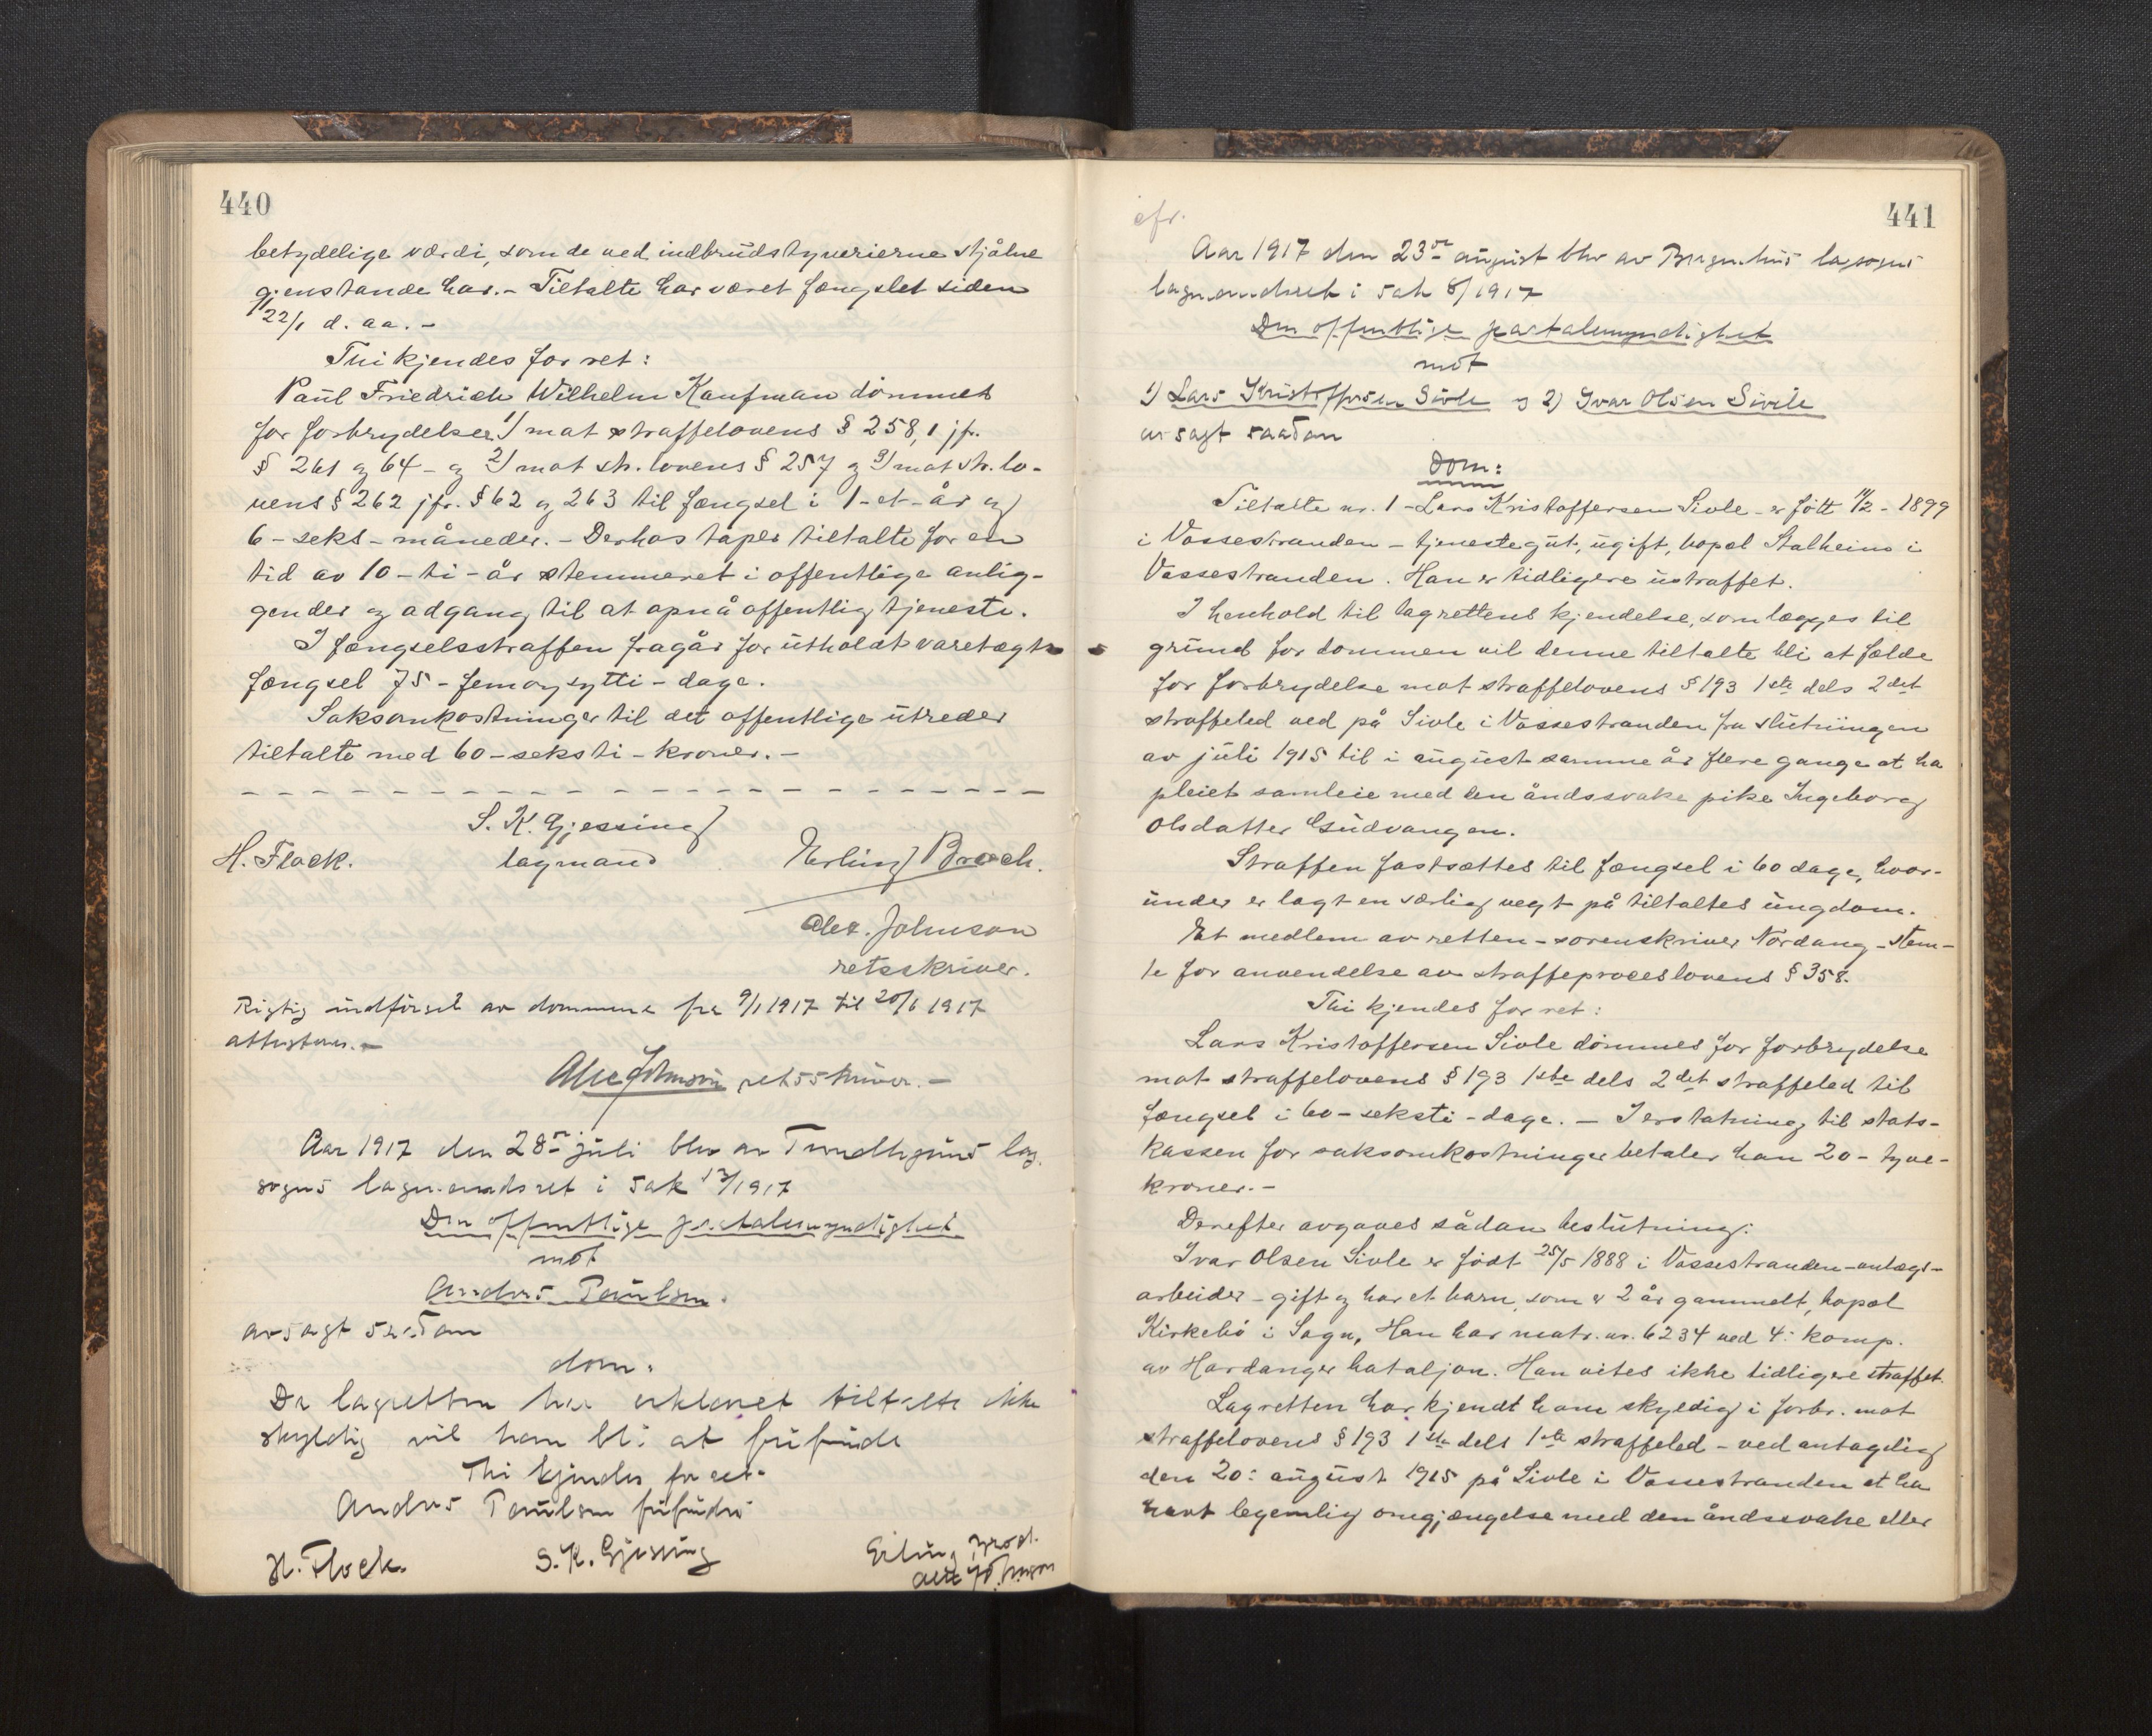 440
betydelige værdi, som de ved indbrudstyverierne stjålne
gjenstande har. – Tiltalte har været fængslet siden
22/1 d. aa. –
Thi kjendes for ret:
Paul Friedrich Wilhelm Kaufman dömmes
for forbrydelser 1) mot straffelovens § 258, 1 jfr.
§ 261 og 64 – og 2) mot str. lovens § 257 og 3) mot str. lo-
vens § 262 jfr. § 62 og 263 til fængsel i 1 – et – år og
6 – seks – måneder. – Derhos tapes tiltalte for en
tid av 10 – ti – år stemmeret i offentlige anlig-
gender og adgang til at opnå offentlig tjeneste.
I fængselsstraffen fragår for utholdt varetægts-
fængsel 75 – femogsytti – dage.
Saksomkostninger til det offentlige utreder
tiltalte med 60 – seksti – kroner. –
S. K. Gjessing
H. Flock. lagmand Erling Broch.
Alex. Johnson
retsskriver.
Rigtig indförsel av dommene fra 9/1 1917 til 20/6 1917
attesteres. –
Alex Johnson retsskriver. –
Aar 1917 den 28de juli blev av Trondhjems lag-
sogns lagmandsret i sak 12/1917
Den offentlige paatalemyndighet
mot
Anders Paulsen.
avsagt saadan
dom:
Da lagretten har erklæret tiltalte ikke
skyldig vil han bli at frifinde
Thi kjendes for ret:
Anders Paulsen frifindes
H. Flock. S. K. Gjessing Erling Broch.
Alex Johnson
441
cfr.
Aar 1917 den 23de august blev av Bergenhus lagsogns
lagmandsret i sak 8/1917
Den offentlige paatalemyndighet
mot
1) Lars Kristoffersen Sivle og 2) Ivar Olsen Sivle
avsagt saadan
Dom:
Tiltalte nr. 1 – Lars Kristoffersen Sivle – er födt /2 – 1899
i Vossestranden – tjenestegut, ugift, bopæl Stalheim i
Vossestranden. Han er tidligere ustraffet.
I henhold til lagrettens kjendelse, som lægges til
grund for dommen vil denne tiltalte bli at fælde
for forbrydelse mot straffelovens § 193 1ste dels 2det
straffeled ved på Sivle i Vossestranden fra slutningen
av juli 1915 til i august samme år flere gange at ha
pleiet samleie med den åndssvake pike Ingeborg
Olsdatter Gudvangen.
Straffen fastsættes til fængsel i 60 dage, hvor-
under er lagt en særlig vegt på tiltaltes ungdom.
Et medlem av retten – sorenskriver Nordang – stem-
te for anvendelse av straffeproceslovens § 358.
Thi kjendes for ret:
Lars Kristoffersen Sivle dömmes for forbrydelse
mot straffelovens § 193 1ste dels 2det straffeled til
fængsel i 60 – seksti – dage. – I erstatning til stats-
kassen for saksomkostninger betaler han 20 – tyve –
kroner. –
Derefter avgaves sådan beslutning:
Ivar Olsen Sivle er födt 25/5 1888 i Vossestranden – anlægs-
arbeider – gift og har et barn, som er 2 år gammelt, bopæl
Kirkebö i Sogn. Han har matr. nr. 6234 ved 4: komp.
av Hardanger bataljon. Han vites ikke tidligere straffet.
Lagretten har kjendt ham skyldig i forbr. mot
straffelovens § 193 1ste dels 1ste straffeled – ved antagelig
den 20: august 1915 på Sivle i Vossestranden at ha
havt legemlig omgjængelse med den åndssvake eller